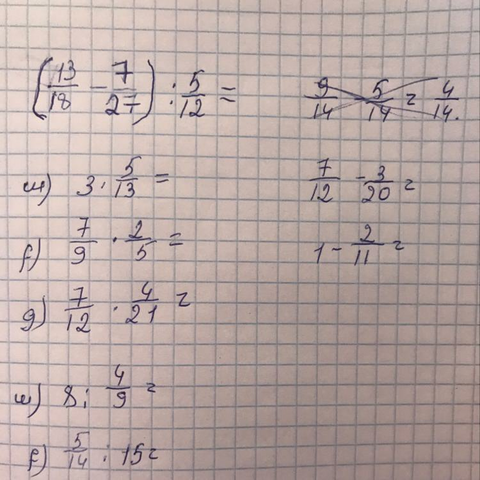 (13/18 - 7/27) : 5/12 =
9/14 - 5/14 = 4/14.
m) 3 · 5/13 =
7/12 - 3/20 =
f) 7/9 · 2/5 =
1 - 2/11 =
g) 7/12 · 4/21 =
m) 8 : 4/9 =
f) 5/14 : 15 =